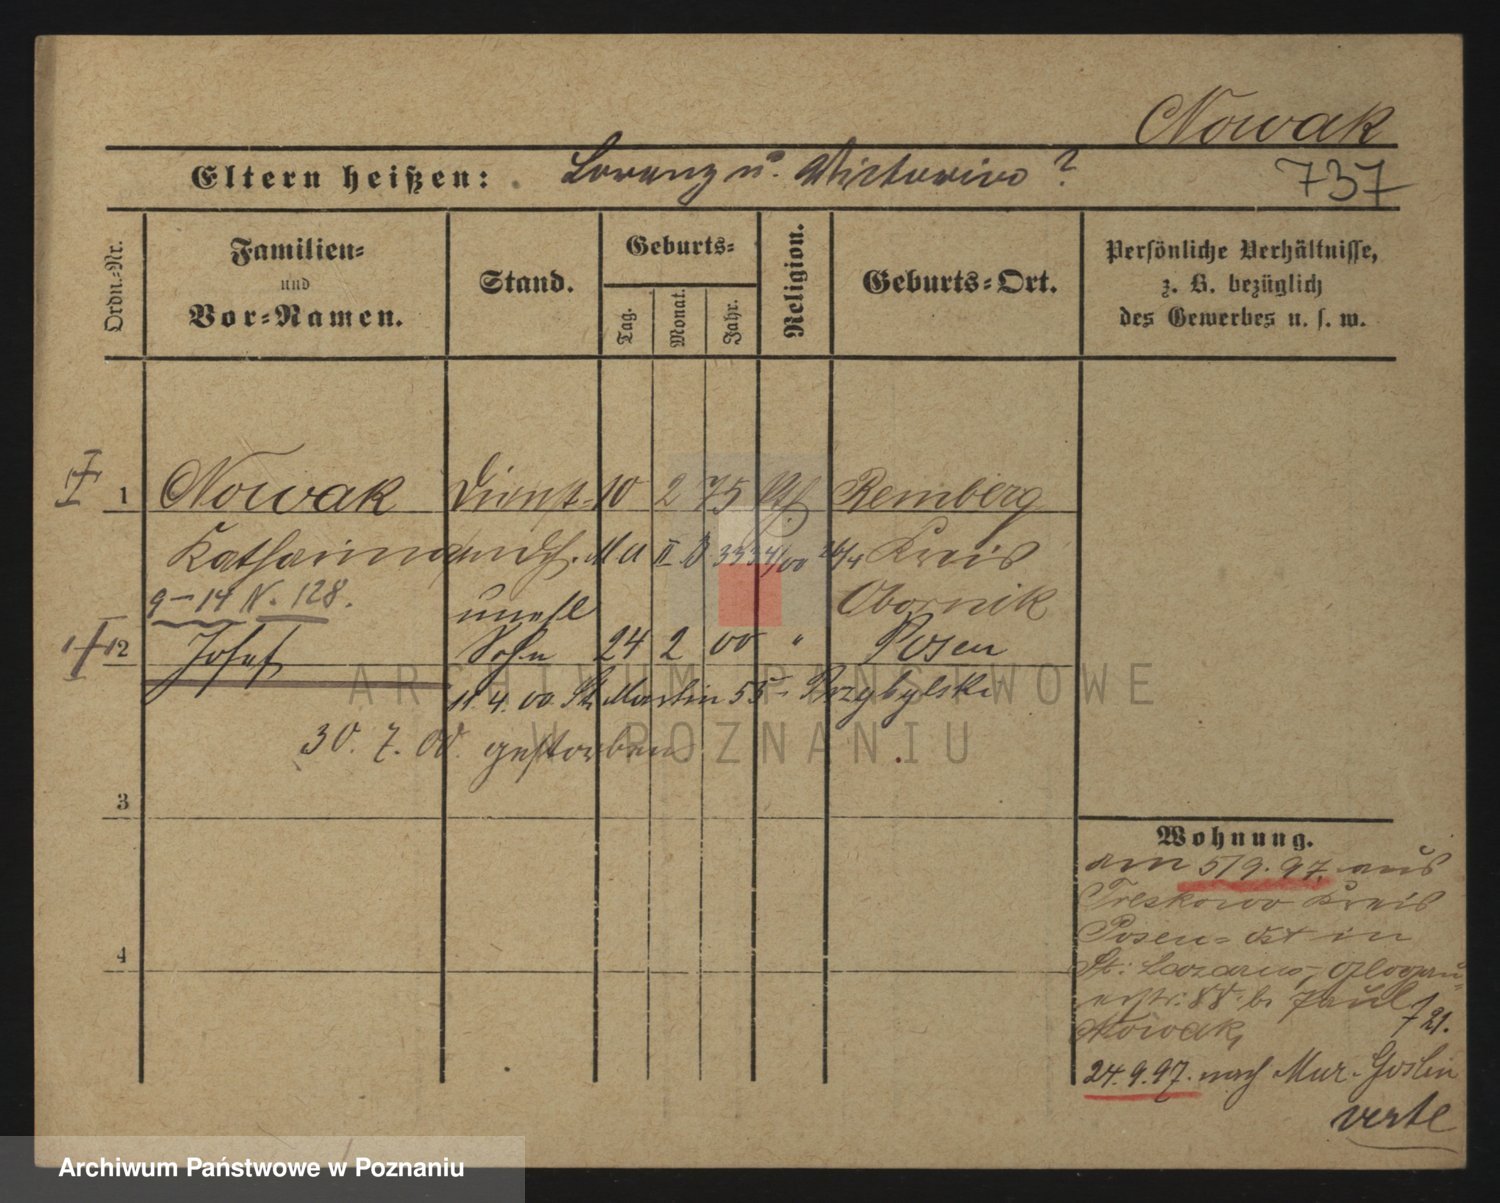 Nowak
Eltern heißen: Lorenz u. Victoria ?
737
Ordn.-Nr.
Familien-
und
Vor-Namen.
Stand.
Geburts-
Tag. Monat. Jahr.
Religion.
Geburts-Ort.
Persönliche Verhältnisse,
z. B. bezüglich
des Gewerbes u. s. w.
1 Nowak Dienst- 10 2 75 Remberg
Katharina Kreis
9-14 N. 128. unehl Obornik
2 Josef Sohn 24 2 00 " Posen
11.4.00 St Martin 55 Przybylski
30.7.00 gestorben
3
4
Wohnung.
am 5/9.97. aus
Treskowo Kreis
Posen-Ost in
St: Lazarus, Glogau-
erstr: 88. b. Paul
Nowak, 21.
24.9.97. nach Mur. Goslin
verte
ARCHIWUM PAŃSTWOWE
W POZNANIU
Archiwum Państwowe w Poznaniu